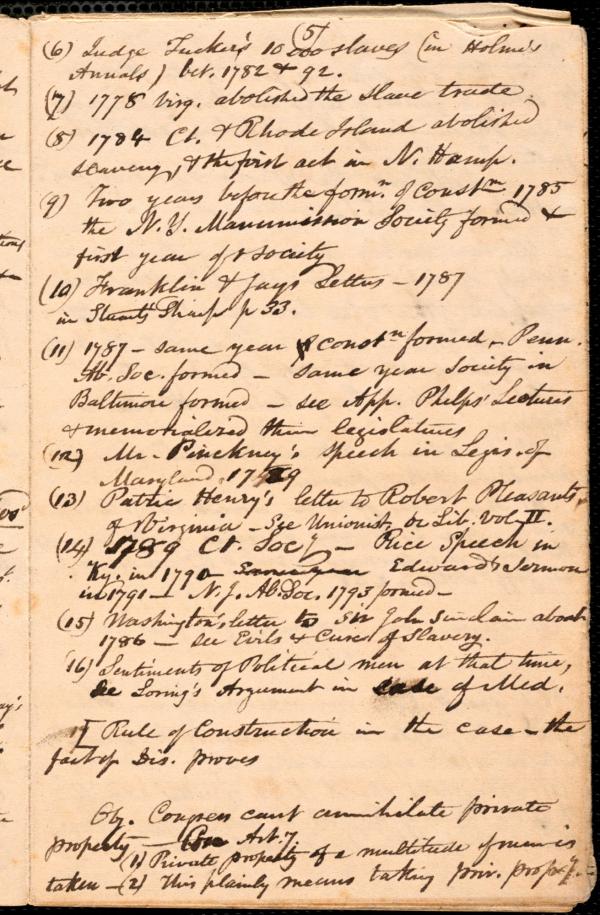 (5)
(6) Judge Tucker's 10 000 slaves (in Holmes
Annals) bet. 1782 & 92.
(7) 1778 Virg. abolished the slave trade
(8) 1784 Ct. & Rhode Island abolished
slavery, & the first act in N. Hamp.
(9) Two years before the formn. of Constn 1785
the N.Y. Manumission Society formed &
first year of society
(10) Franklin & Jays Letters – 1787
in Stuarts Sharp p 33.
(11) 1787 – same year of constn formed, – Penn.
Ab. Soc. formed – same year Society in
Baltimore formed – see App. Phelps' Lectures
& memorialized their legislatures
(12) Mr. Pinckney's speech in Legis. of
Maryland 1789
(13) Patric Henry's letter to Robert Pleasants,
of Virginia – See Unionist, or Lib. Vol. II.
(14) 1789 Ct. Socy – Rice Speech in
Ky. in 1790 – Edwards Sermon
in 1791 – N.J. Ab. Soc. 1793 formed –
(15) Washington's letter to Sir John Sinclair about
1786 – see Evils & Cure of Slavery.
(16) Sentiments of Political men at that time,
see Loring's Argument in case of Med.
Rule of Construction in the case – the
fact of Dis. proves
Obj. Congress cant annihilate private
property – Con Art. 7
(1) Private property of a multitude of men is
taken – (2) This plainly means taking priv. propy.